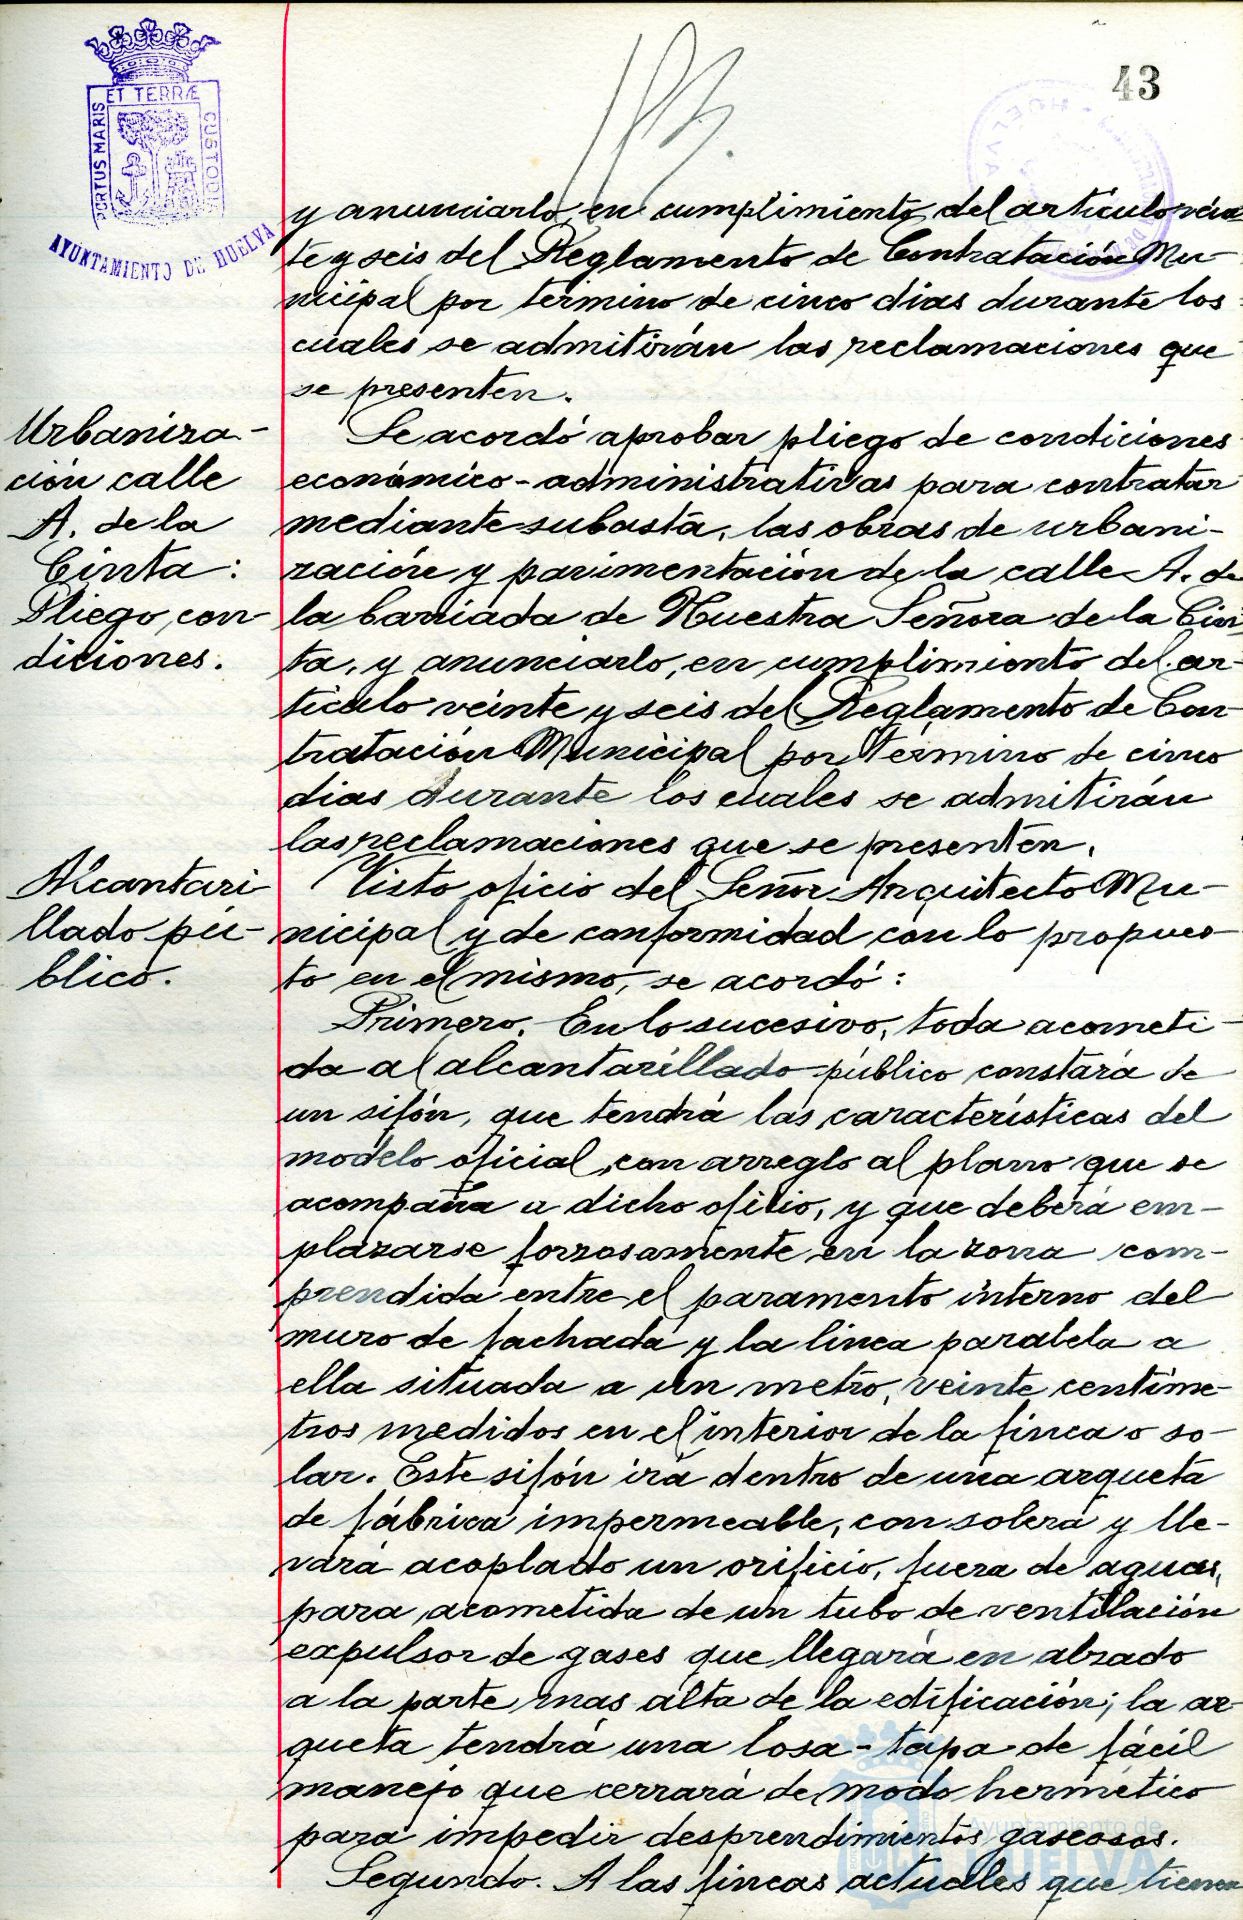 43
PORTUS MARIS ET TERRÆ CUSTODIA
AYUNTAMIENTO DE HUELVA
y anunciarlo, en cumplimiento, del artículo vein
te y seis del Reglamento de Contratación Mu-
nicipal por término de cinco dias durante los
cuales se admitirán las reclamaciones que
se presenten.
Urbaniza-
ción calle
A. de la
Cinta:
Pliego, con-
diciones.
Se acordó aprobar pliego de condiciones
económico-administrativas para contratar
mediante subasta, las obras de urbani-
zación y pavimentación de la calle A. de
la barriada de Nuestra Señora de la Cin
ta, y anunciarlo, en cumplimiento del ar-
tículo veinte y seis del Reglamento de Con-
tratación Municipal por término de cinco
dias durante los cuales se admitirán
las reclamaciones que se presenten.
Alcantari
llado pú-
blico.
Visto oficio del Señor Arquitecto Mu-
nicipal y de conformidad con lo propues-
to en el mismo, se acordó:
Primero. En lo sucesivo, toda acometi-
da al alcantarillado público constará de
un sifón, que tendrá las características del
modelo oficial, con arreglo al plano que se
acompaña a dicho oficio, y que deberá em-
plazarse forzosamente en la zona com-
prendida entre el paramento interno del
muro de fachada y la linea paralela a
ella situada a un metro, veinte centíme-
tros medidos en el interior de la finca o so-
lar. Este sifón irá dentro de una arqueta
de fábrica impermeable, con solera y lle-
vará acoplado un orificio, fuera de aguas,
para acometida de un tubo de ventilación
expulsor de gases que llegará en alzado
a la parte mas alta de la edificación; la ar-
queta tendrá una losa-tapa de fácil
manejo que cerrará de modo hermético
para impedir desprendimientos gaseosos.
Segundo. A las fincas actuales que tienen
Ayuntamiento de
HUELVA